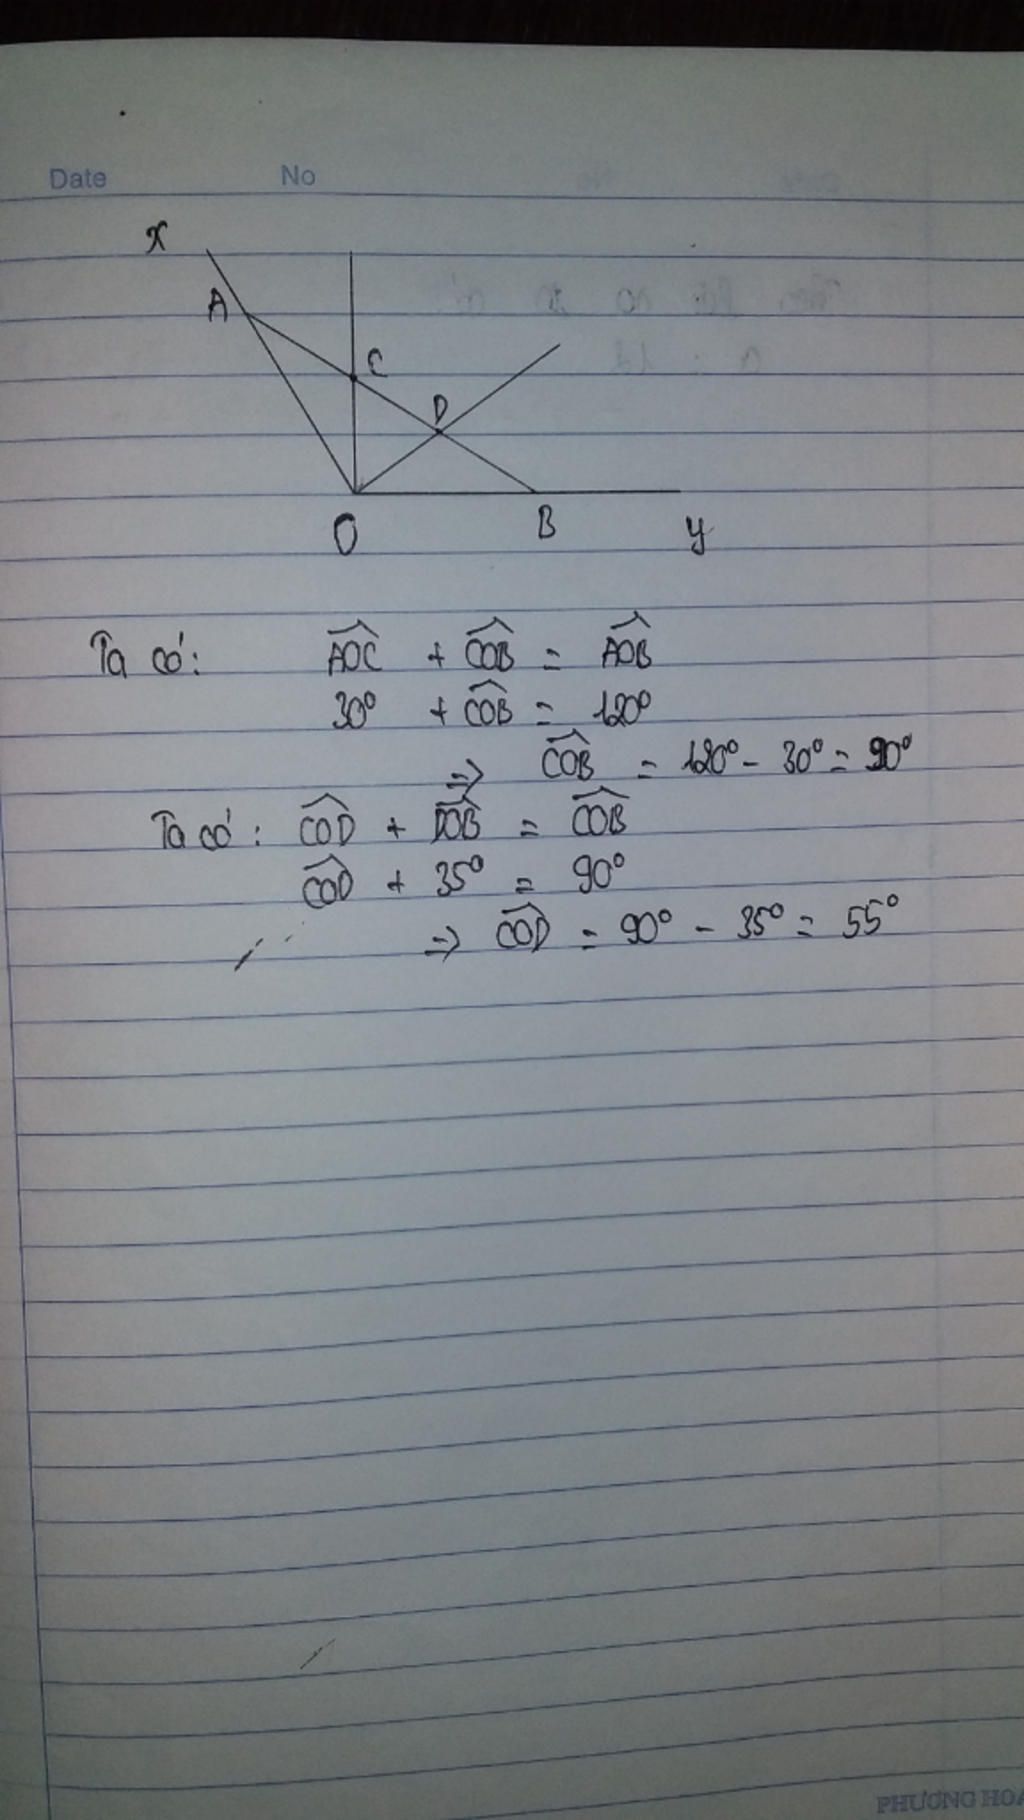 Date No
x
A
C
D
O B y
Ta có: AOC + COB = AOB
30° + COB = 120°
=> COB = 120° - 30° = 90°
Ta có: COD + DOB = COB
COD + 35° = 90°
=> COD = 90° - 35° = 55°
PHƯƠNG HOA